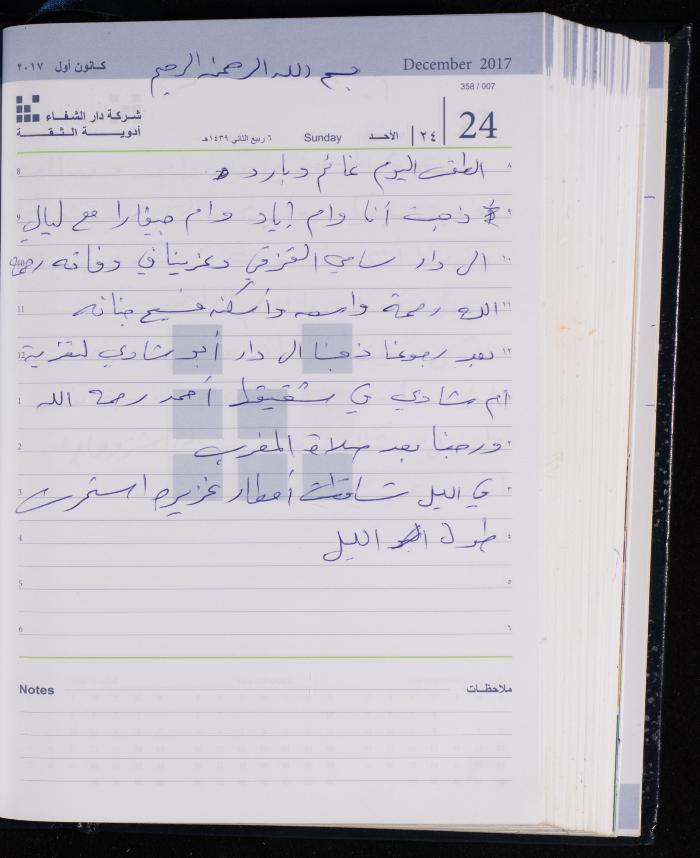 كانون أول ٢٠١٧
بسم الله الرحمن الرحيم
December 2017
358 / 007
شركة دار الشفاء
أدوية الثقة
٦ ربيع الثاني ١٤٣٩هـ Sunday الأحد ٢٤ 24
8 الطقس اليوم غائم وبارد ٨
9 ذهبت أنا وام إياد وام صقارا مع ليالي ٩
10 الى دار سامي القزقي وعزينا في وفاته رحمة ١٠
11 الله رحمة واسعه وأسكنه فسيح جنانه ١١
12 بعد رجوعنا ذهبنا الى دار أبو شادي لتعزية ١٢
1 ام شادي في شقيقها أحمد رحمه الله ١
2 ورجعنا بعد صلاة المغرب ٢
3 في اليل تساقطت أمطار غزيره استمرت ٣
4 طول اليل ٤
5 ٥
6 ٦
Notes ملاحظات